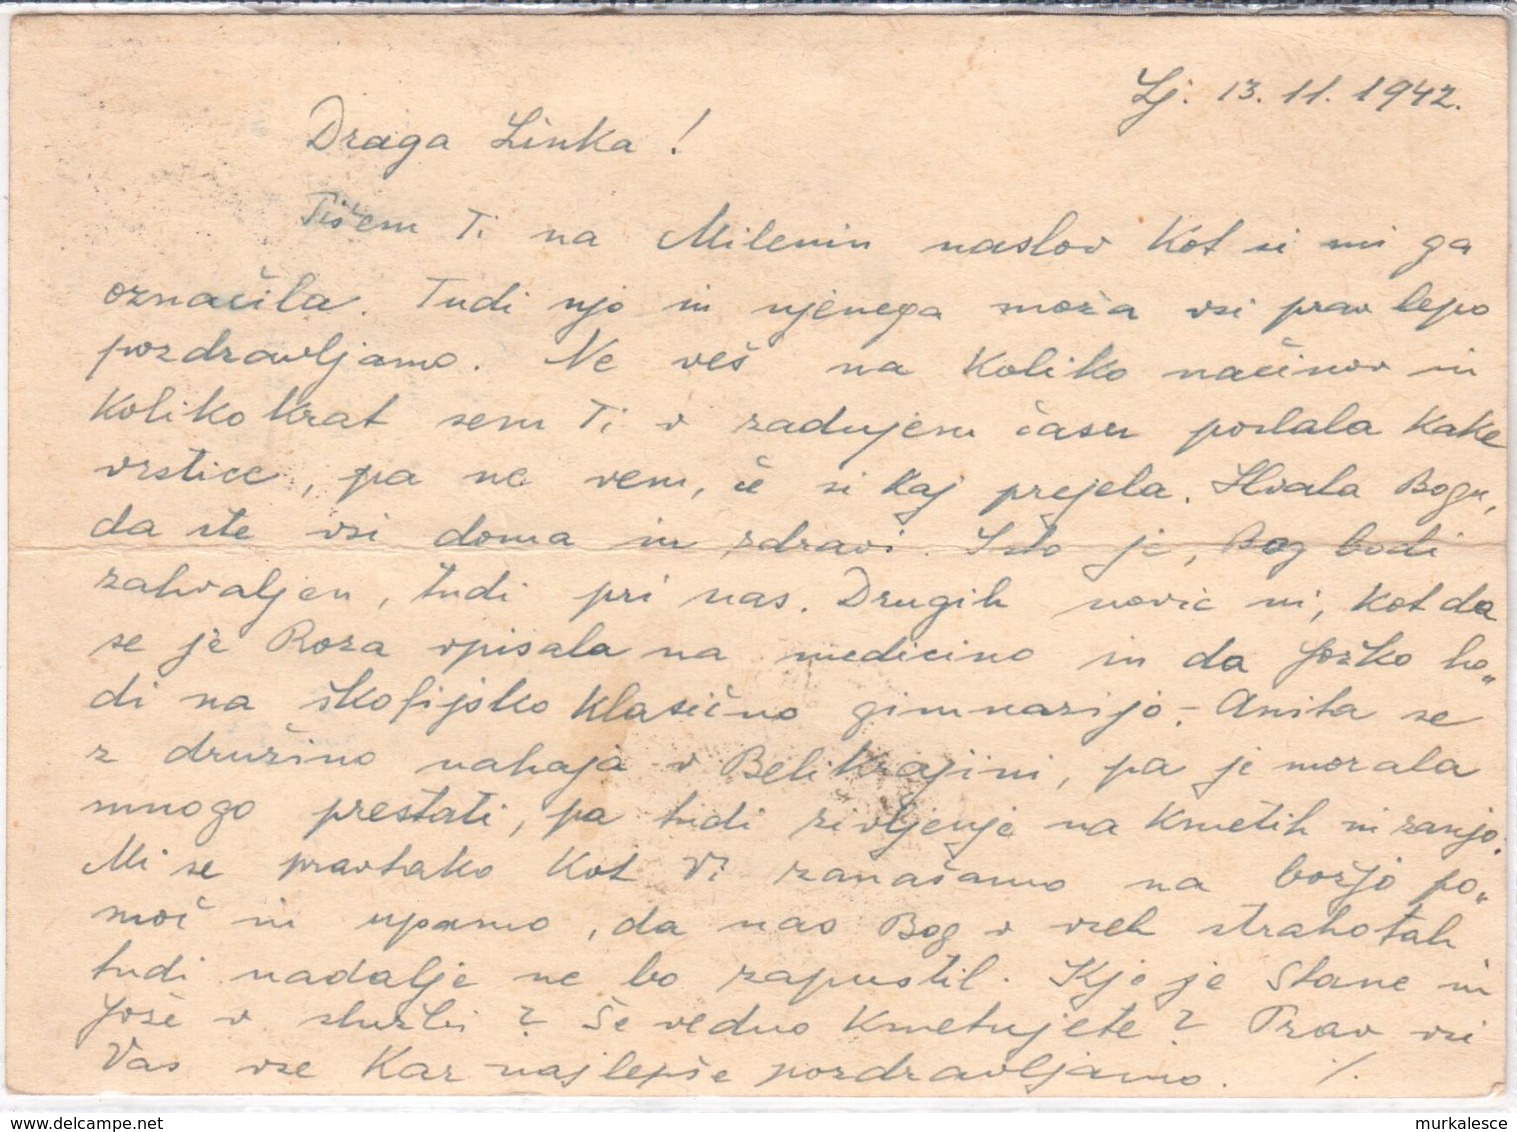 Lj. 13.11.1942.
Draga Linka!
Pišem Ti na Milenin naslov kot si mi ga
označila. Tudi njo in njenega moža vsi prav lepo
pozdravljamo. Ne veš na koliko načinov in
kolikokrat sem Ti v zadnjem času poslala kake
vrstice, pa ne vem, če si kaj prejela. Hvala Bogu,
da ste vsi doma in zdravi. Isto je, Bog bodi
zahvaljen, tudi pri nas. Drugih novic ni, kot da
se je Roza vpisala na medicino in da Joško ho„
di na škofijsko klasično gimnazijo.- Anita se
z družino nahaja v Beli Krajini, pa je morala
mnogo prestati, pa tudi življenje na kmetih ni zanjo.
Mi se pravtako kot Vi zanašamo na božjo po„
moč in upamo, da nas Bog v vseh strahotah
tudi nadalje ne bo zapustil. Kje je Stane in
Jože v službi? Še vedno kmetujete? Prav vsi
Vas vse kar najlepše pozdravljamo. ./.
murkalesce